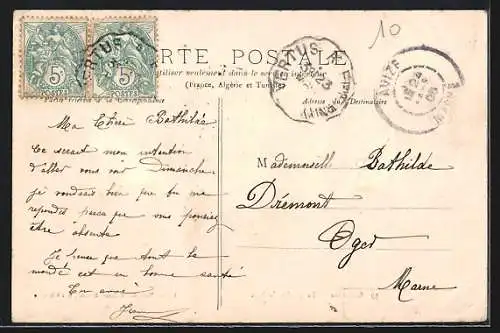 10
5c 5c
VERTUS
CARTE POSTALE
VERTUS A
AVIZE
utiliser seulement dans le service intérieur
(France, Algérie et Tunisie)
Correspondance
Adresse du Destinataire
Ma Chère Bathilde
Ce serait mon intention
d'aller vous voir Dimanche
je voudrais bien que tu me
repondes parce que vous pouriez
être absente
Je pense que tout le
monde est en bonne santé
En ami
Mademoiselle Bathilde
Drémont
Oger
Marne